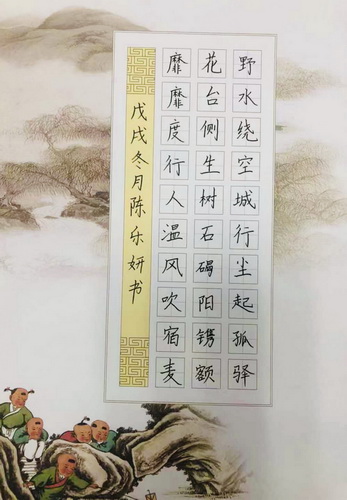 野水绕空城行尘起孤驿
花台侧生树石碣阳镌额
靡靡度行人温风吹宿麦
戊戌冬月陈乐妍书